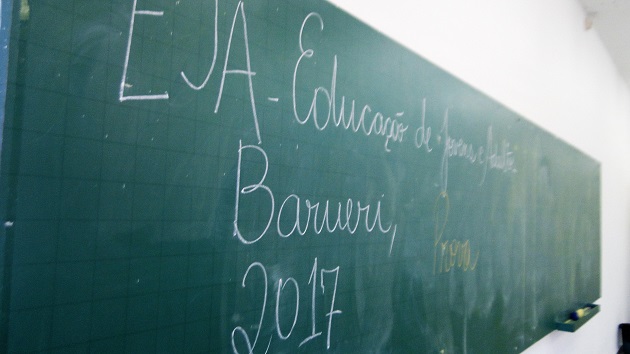 EJA - Educação de Jovens e Adultos
Barueri,
Prova
2017